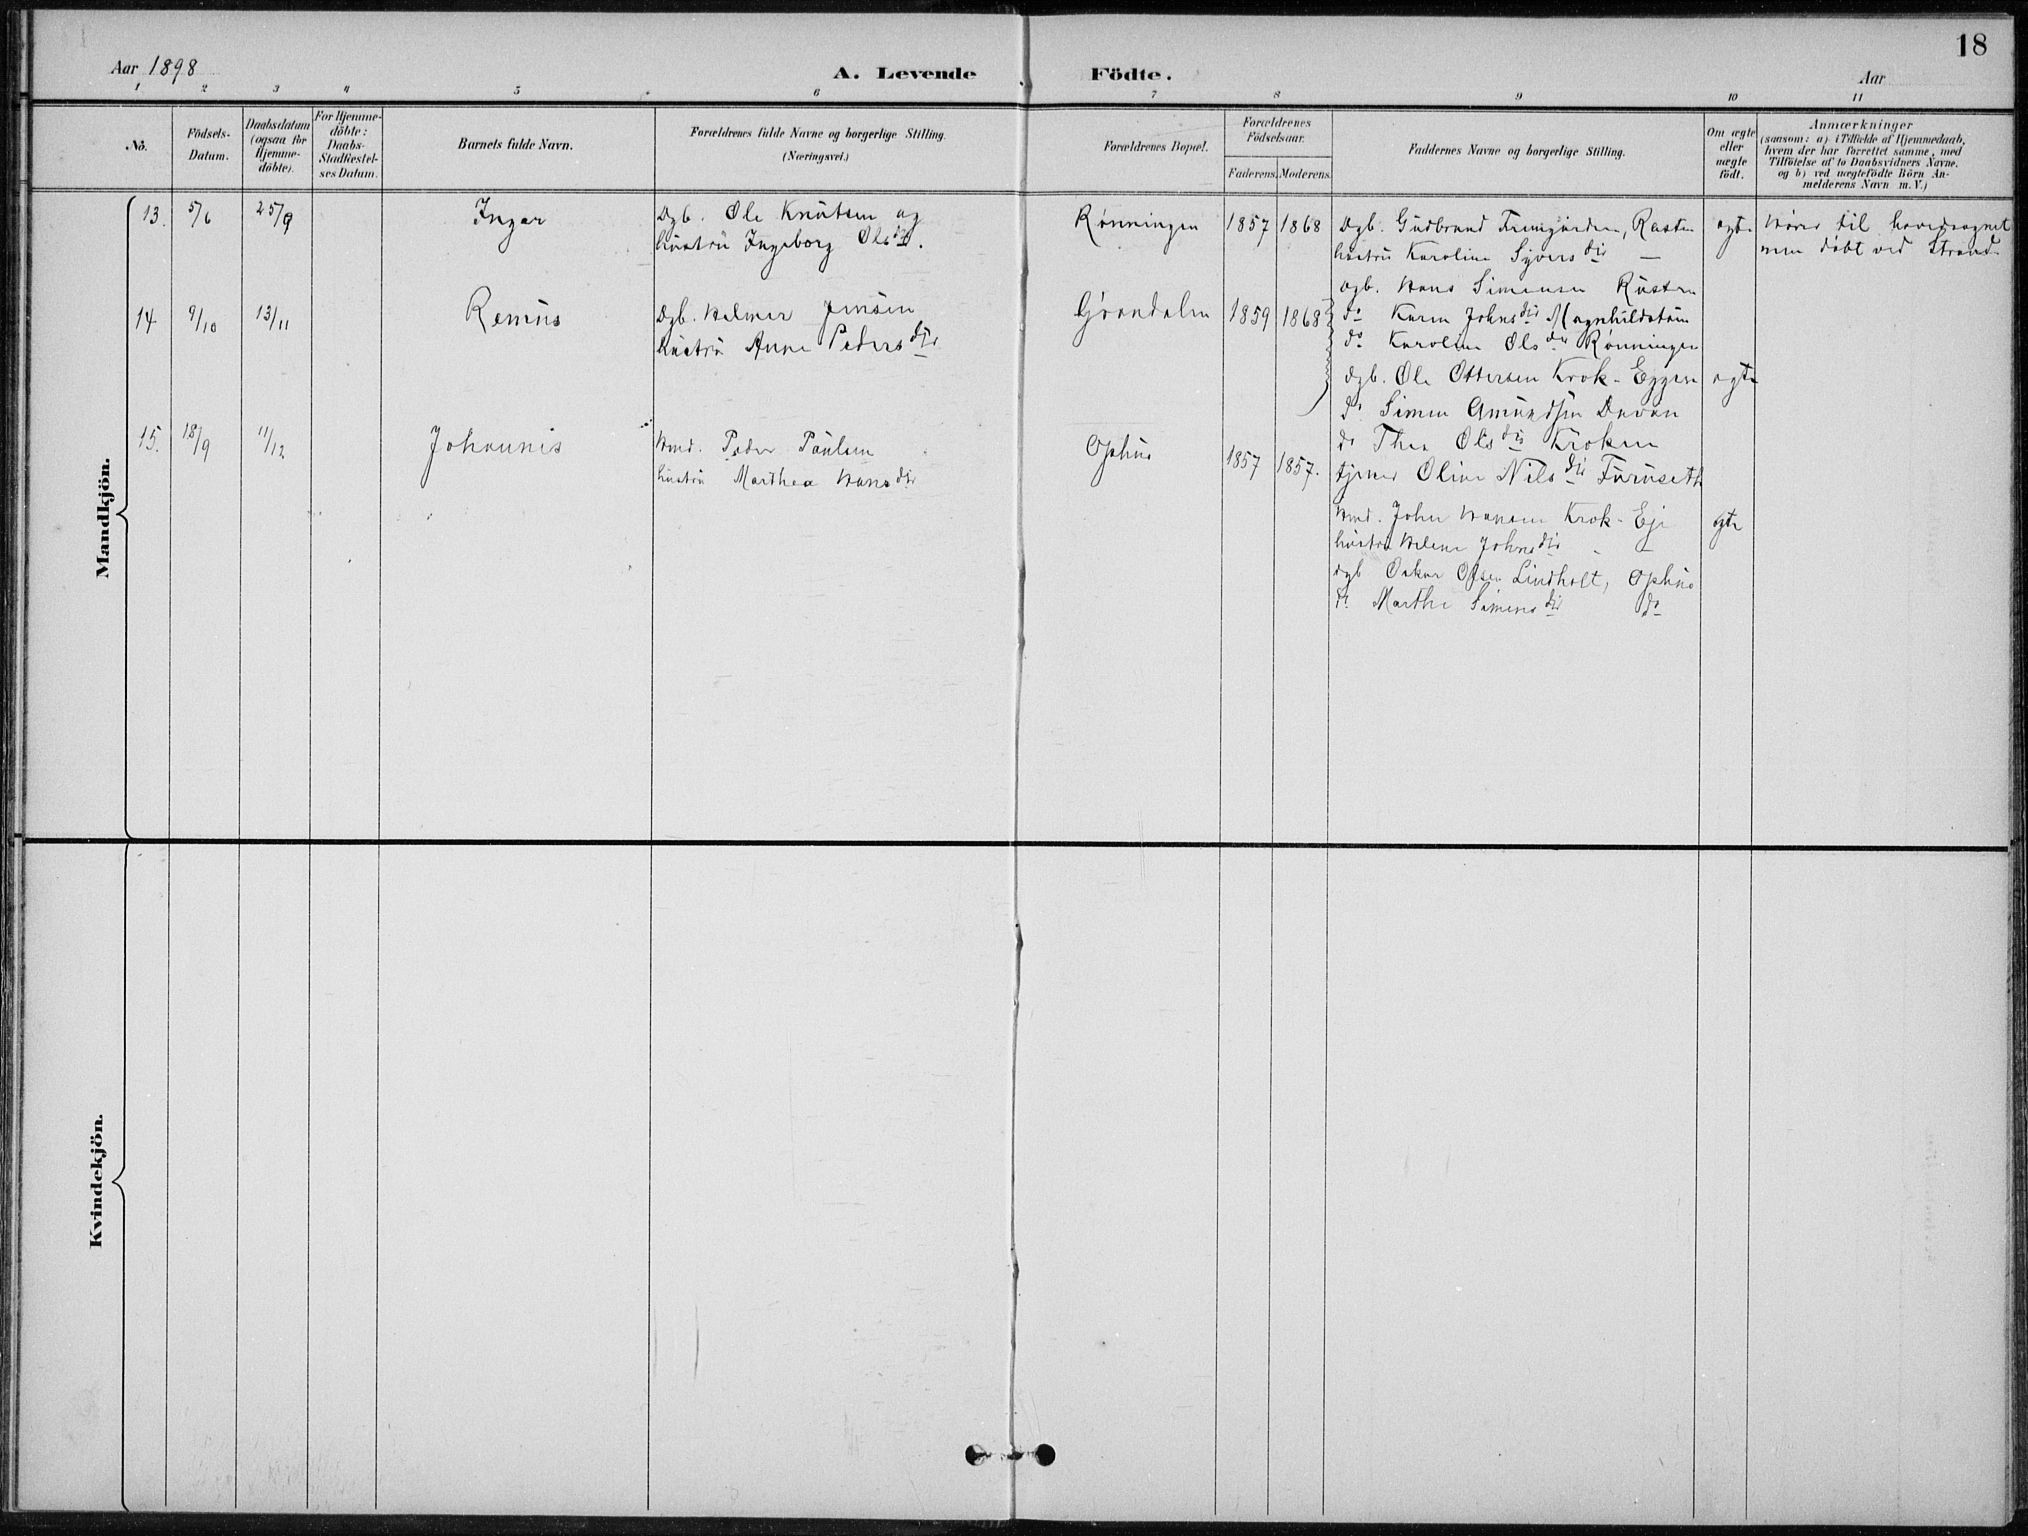 18
Aar 1898
A. Levende Födte.
Aar
1 2 3 4 5 6 7 8 9 10 11
No.
Födsels-Datum.
Daabsdatum (ogsaa for Hjemme-döbte).
For Hjemme-döbte: Daabs-Stadfæstel-ses Datum.
Barnets fulde Navn.
Forældrenes fulde Navne og borgerlige Stilling.
(Næringsvei.)
Forældrenes Bopæl.
Forældrenes Födselsaar.
Faderens. Moderens.
Faddernes Navne og borgerlige Stilling.
Om ægte eller uægte født.
Anmærkninger
(saasom: a) i Tilfælde af Hjemmedaab,
hvem der har forrettet samme, med
Tilföielse af to Daabsvidners Navne.
og b) ved uægtefødte Börn An-
melderens Navn m. V.)
Mandkjön.
13. 5/6 25/9 Ingar Dgb. Ole Knutsen og Rønningen 1857 1868 Dgb. Gudbrand , Rasten ægte Hører til hovedsognet
hustru Ingeborg Olsdtr. hustru Karoline Syversdtr — men døbt ved Strand
Hans Simensen Rusten
14 9/10 13/11 Remus Dgb. Helmer Jensen Grøndalen 1859 1868 do Karen Johnsdtr Magnhildstuen
hustru Anne Pedersdtr do Karoline Olsdtr Rønningen
dgb. Ole Ottersen Krok-Eggen ægte
do Simen Amundsen Davan
15. 18/9 11/12 Johannes Hmd. Peder Paulsen Ophus 1857 1857. do Thea Olsdtr Kroken
hustru Marthea Hansdtr tjener Oline Nilsdtr Furuseth
Hmd. John Hansen Krok-Eje ægte
hustru Helene Johnsdtr — —
dgb Oskar Olsen Lindholt, Ophus
do Marthe Simensdtr do
Kvindekjön.